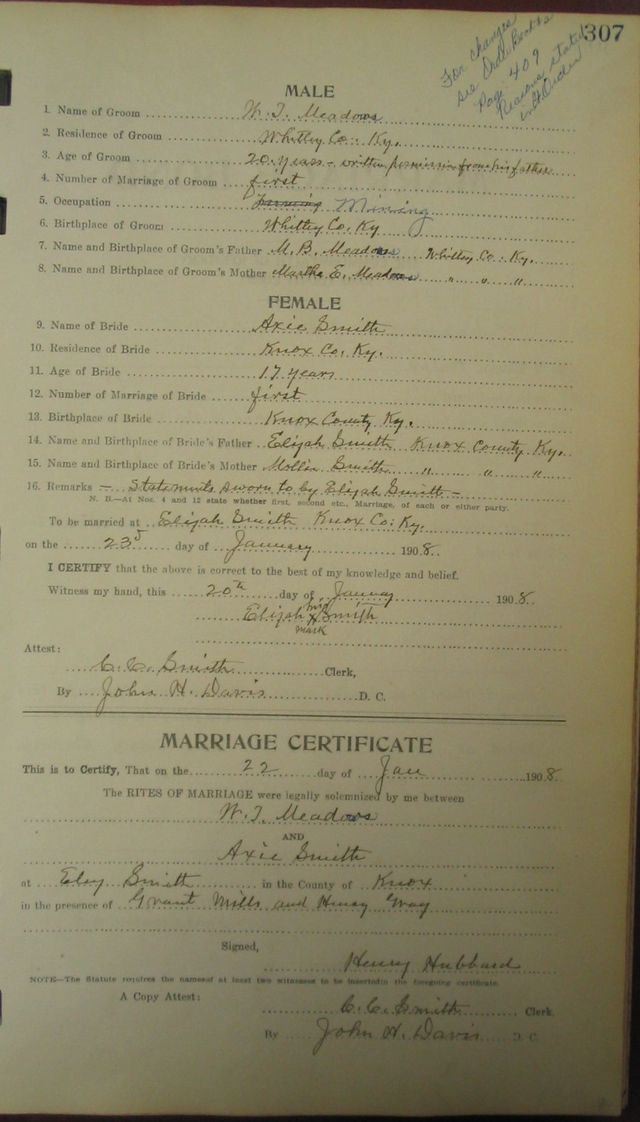 307
For changes
see Order Book
Page 409
Reasons stated
in Order
MALE
1. Name of Groom W. T. Meadows
2. Residence of Groom Whitley Co. Ky.
3. Age of Groom 20 years - written permission from his father
4. Number of Marriage of Groom first
5. Occupation Farming Mining
6. Birthplace of Groom Whitley Co. Ky
7. Name and Birthplace of Groom's Father M. B. Meadows Whitley Co. Ky.
8. Name and Birthplace of Groom's Mother Martha E. Meadows " " "
FEMALE
9. Name of Bride Axie Smith
10. Residence of Bride Knox Co. Ky.
11. Age of Bride 17 years
12. Number of Marriage of Bride first
13. Birthplace of Bride Knox County, Ky.
14. Name and Birthplace of Bride's Father Elijah Smith Knox County Ky.
15. Name and Birthplace of Bride's Mother Mollie Smith " " "
16. Remarks – Statements sworn to by Elijah Smith –
N. B.—At Nos. 4 and 12 state whether first, second etc., Marriage, of each or either party.
To be married at Elijah Smith Knox Co. Ky.
on the 23 day of January 1908
I CERTIFY that the above is correct to the best of my knowledge and belief.
Witness my hand, this 20th day of January 1908
Elijah his X Smith
mark
Attest:
C. C. Smith Clerk,
By John H. Davis D. C.
MARRIAGE CERTIFICATE
This is to Certify, That on the 22 day of Jan 1908
The RITES OF MARRIAGE were legally solemnized by me between
W. T. Meadows
AND
Axie Smith
at Eley Smith in the County of Knox
in the presence of Grant Mills and Henry Gray
Signed,
Henry Hubbard
NOTE—The Statute requires the names of at least two witnesses to be inserted in the foregoing certificate.
A Copy Attest:
C. C. Smith Clerk
By John H. Davis D. C.